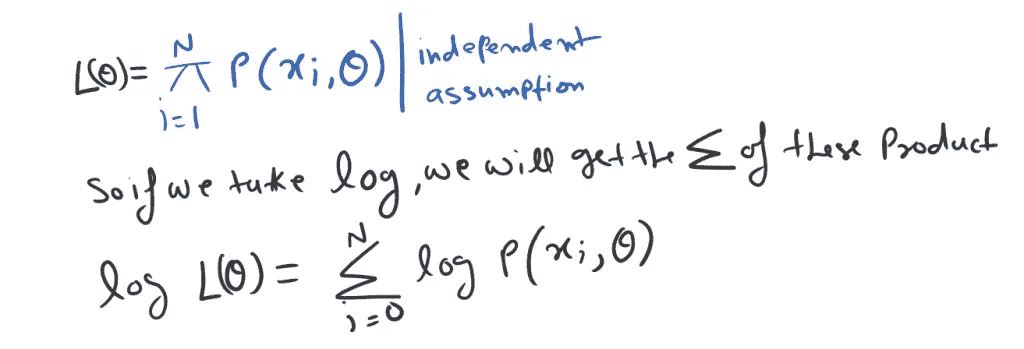 L(θ) = ∏_{i=1}^{N} P(xi, θ) | independent assumption
So if we take log, we will get the Σ of these Product
log L(θ) = Σ_{i=0}^{N} log P(xi, θ)